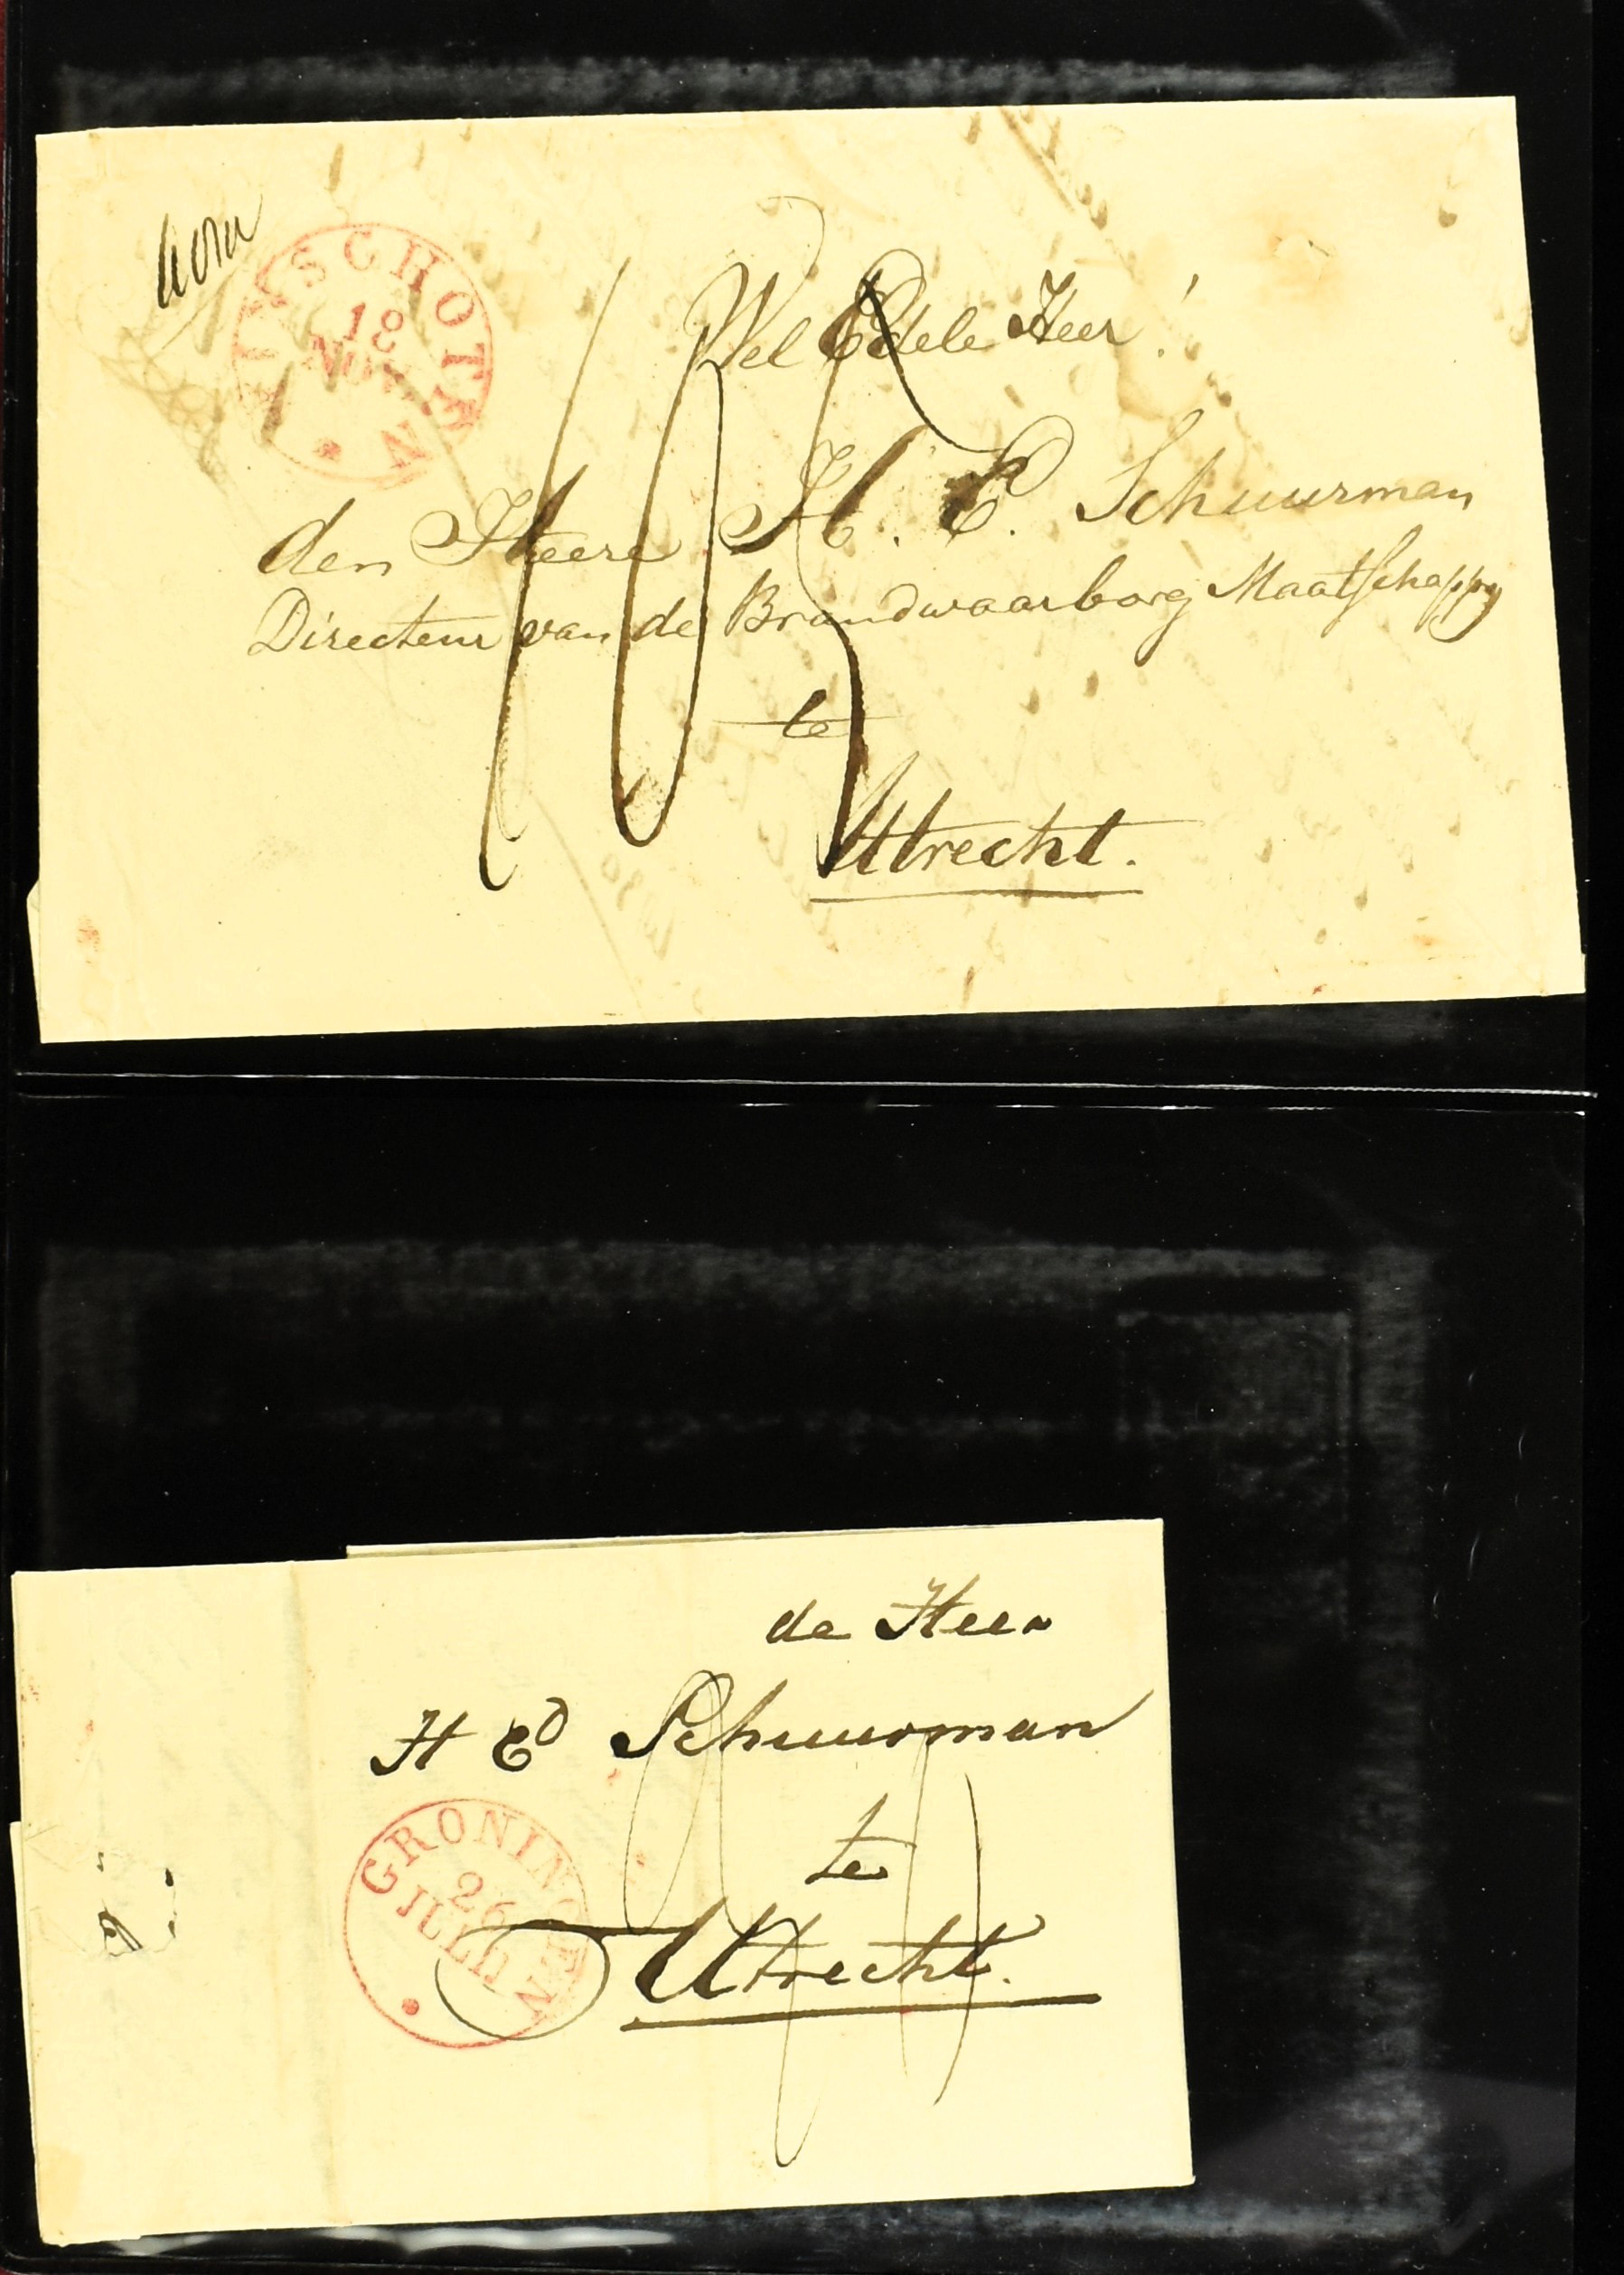 WINSCHOTEN
18
NOV
Wel Edele Heer!
den Heere H. E. Schuurman
Directeur van de Brandwaarborg Maatschappy
te
Utrecht.
de Heer
H Ed Schuurman
GRONINGEN
26
JULIJ
te
Utrecht.